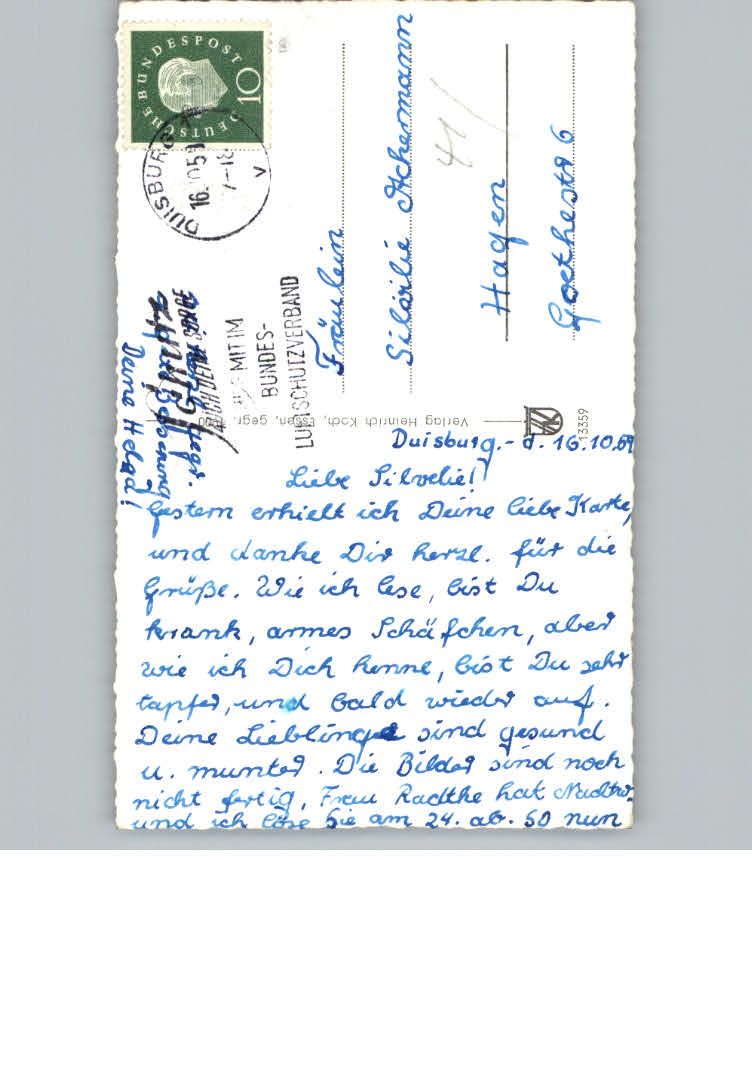 DEUTSCHE BUNDESPOST
10
DUISBURG
16.10.59
7-18
V
MIT IM
BUNDES-
LUFTSCHUTZVERBAND
Fräulein
Silvelie Achermann
Hagen
Goethestr 6
41/
Verlag Heinrich Koch, Essen, gegr. 1900
13359
Duisburg.- d. 16.10.59
Liebe Silvelie!
Gestern erhielt ich Deine liebe Karte,
und danke Dir herzl. für die
Grüße. Wie ich lese, bist Du
krank, armes Schäfchen, aber
wie ich Dich kenne, bist Du sehr
tapfer, und bald wieder auf.
Deine Lieblinge sind gesund
u. munter. Die Bilder sind noch
nicht fertig. Frau Radtke hat
und ich löse sie am 24. ab. So nun
gute Besserung
Deine Helga!